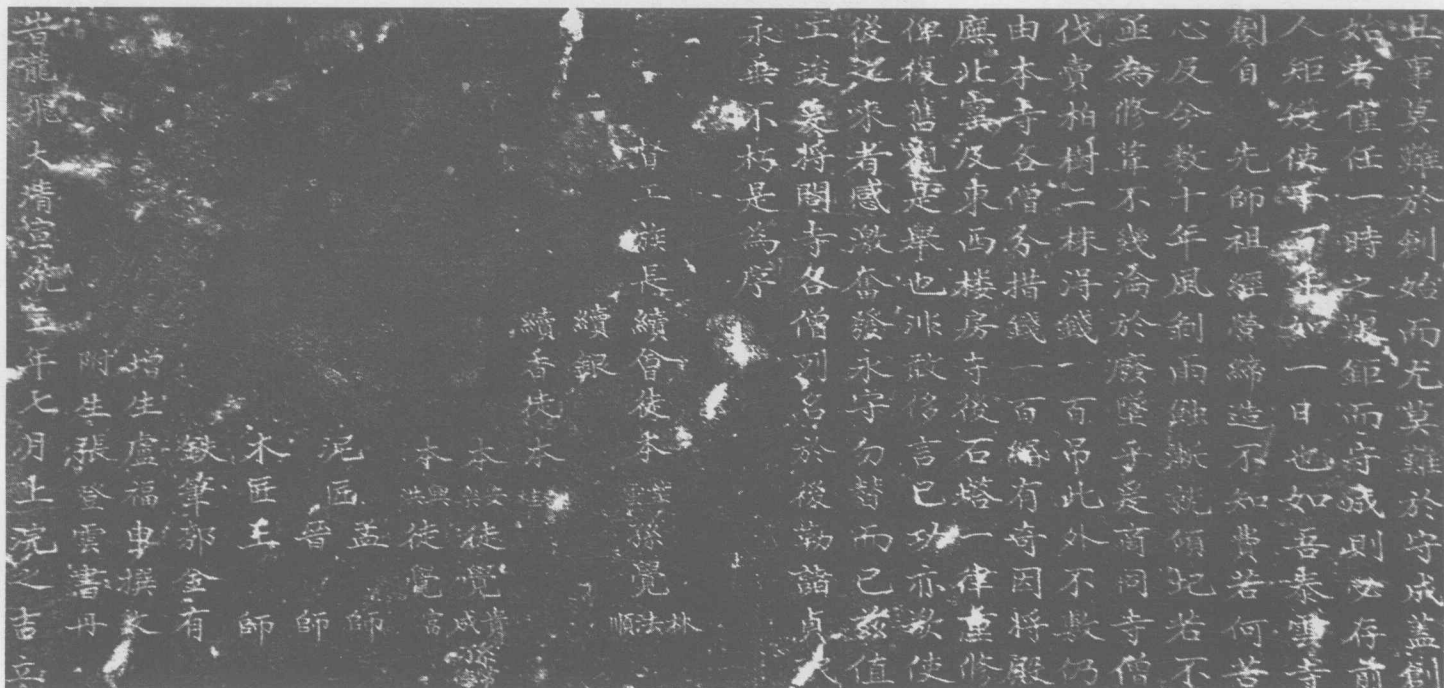 且事莫難於創始而尤莫難於守成蓋創
始者僅任一時之艱鉅而守成則必存前
人矩矱使千百年如一日也如吾泰雲寺
創自　先師祖經營締造不知費若何苦
心反今数十年風剝雨蝕漸就傾圮若不
亟為修葺不幾淪於廢墜乎爰商同寺僧
伐賣柏樹二株淂錢一百吊此外不敷仍
由本寺各僧分措錢一百緡有奇因将殿
廡北窰及東西楼房寺後石塔一律重修
俾復舊觀是舉也非敢侈言已功亦欲使
後之来者感激奮發永守勿替而已茲值
工竣爰将閤寺各僧列名於後勒諸貞珉
永垂不朽是為序
督工族長續會徒本孫覺林法順
續銀
續香徒本桂
本安徒覺肯成
本興洪徒覺富
泥匠孟晉師師
木匠王師
鉄筆郭全有
增生盧福申撰文
附生張登雲書丹
旹龍飛大清宣統三年七月上浣之吉立